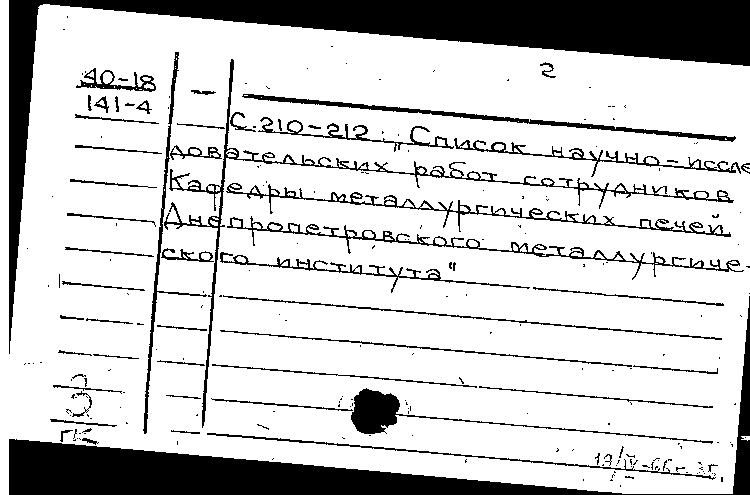 2
40-18
141-4
—
С.210-212: „Список научно-иссле
довательских работ сотрудников
Кафедры металлургических печей
Днепропетровского металлургиче-
ского института"
3
ГК
19/IV-66г.